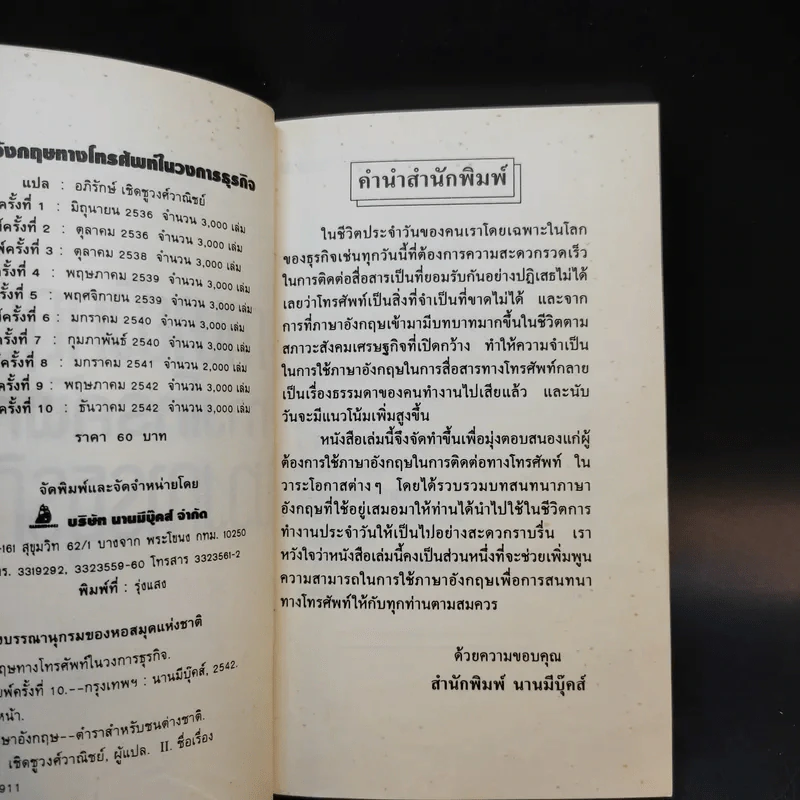 อังกฤษทางโทรศัพท์ในวงการธุรกิจ
แปล : อภิรักษ์ เชิดชูวงศ์วาณิชย์
ครั้งที่ 1 : มิถุนายน 2536 จำนวน 3,000 เล่ม
ครั้งที่ 2 : ตุลาคม 2536 จำนวน 3,000 เล่ม
ครั้งที่ 3 : ตุลาคม 2538 จำนวน 3,000 เล่ม
ครั้งที่ 4 : พฤษภาคม 2539 จำนวน 3,000 เล่ม
ครั้งที่ 5 : พฤศจิกายน 2539 จำนวน 3,000 เล่ม
ครั้งที่ 6 : มกราคม 2540 จำนวน 3,000 เล่ม
ครั้งที่ 7 : กุมภาพันธ์ 2540 จำนวน 3,000 เล่ม
ครั้งที่ 8 : มกราคม 2541 จำนวน 2,000 เล่ม
ครั้งที่ 9 : พฤษภาคม 2542 จำนวน 3,000 เล่ม
ครั้งที่ 10 : ธันวาคม 2542 จำนวน 3,000 เล่ม
ราคา 60 บาท
จัดพิมพ์และจัดจำหน่ายโดย
บริษัท นานมีบุ๊คส์ จำกัด
-161 สุขุมวิท 62/1 บางจาก พระโขนง กทม. 10250
ทร. 3319292, 3323559-60 โทรสาร 3323561-2
พิมพ์ที่ : รุ่งแสง
งบรรณานุกรมของหอสมุดแห่งชาติ
กฤษทางโทรศัพท์ในวงการธุรกิจ.
พ์ครั้งที่ 10.--กรุงเทพฯ : นานมีบุ๊คส์, 2542.
หน้า.
าษาอังกฤษ--ตำราสำหรับชนต่างชาติ.
เชิดชูวงศ์วาณิชย์, ผู้แปล. II. ชื่อเรื่อง
911
คำนำสำนักพิมพ์
ในชีวิตประจำวันของคนเราโดยเฉพาะในโลก
ของธุรกิจเช่นทุกวันนี้ที่ต้องการความสะดวกรวดเร็ว
ในการติดต่อสื่อสารเป็นที่ยอมรับกันอย่างปฏิเสธไม่ได้
เลยว่าโทรศัพท์เป็นสิ่งที่จำเป็นที่ขาดไม่ได้ และจาก
การที่ภาษาอังกฤษเข้ามามีบทบาทมากขึ้นในชีวิตตาม
สภาวะสังคมเศรษฐกิจที่เปิดกว้าง ทำให้ความจำเป็น
ในการใช้ภาษาอังกฤษในการสื่อสารทางโทรศัพท์กลาย
เป็นเรื่องธรรมดาของคนทำงานไปเสียแล้ว และนับ
วันจะมีแนวโน้มเพิ่มสูงขึ้น
หนังสือเล่มนี้จึงจัดทำขึ้นเพื่อมุ่งตอบสนองแก่ผู้
ต้องการใช้ภาษาอังกฤษในการติดต่อทางโทรศัพท์ ใน
วาระโอกาสต่างๆ โดยได้รวบรวมบทสนทนาภาษา
อังกฤษที่ใช้อยู่เสมอมาให้ท่านได้นำไปใช้ในชีวิตการ
ทำงานประจำวันให้เป็นไปอย่างสะดวกราบรื่น เรา
หวังใจว่าหนังสือเล่มนี้คงเป็นส่วนหนึ่งที่จะช่วยเพิ่มพูน
ความสามารถในการใช้ภาษาอังกฤษเพื่อการสนทนา
ทางโทรศัพท์ให้กับทุกท่านตามสมควร
ด้วยความขอบคุณ
สำนักพิมพ์ นานมีบุ๊คส์